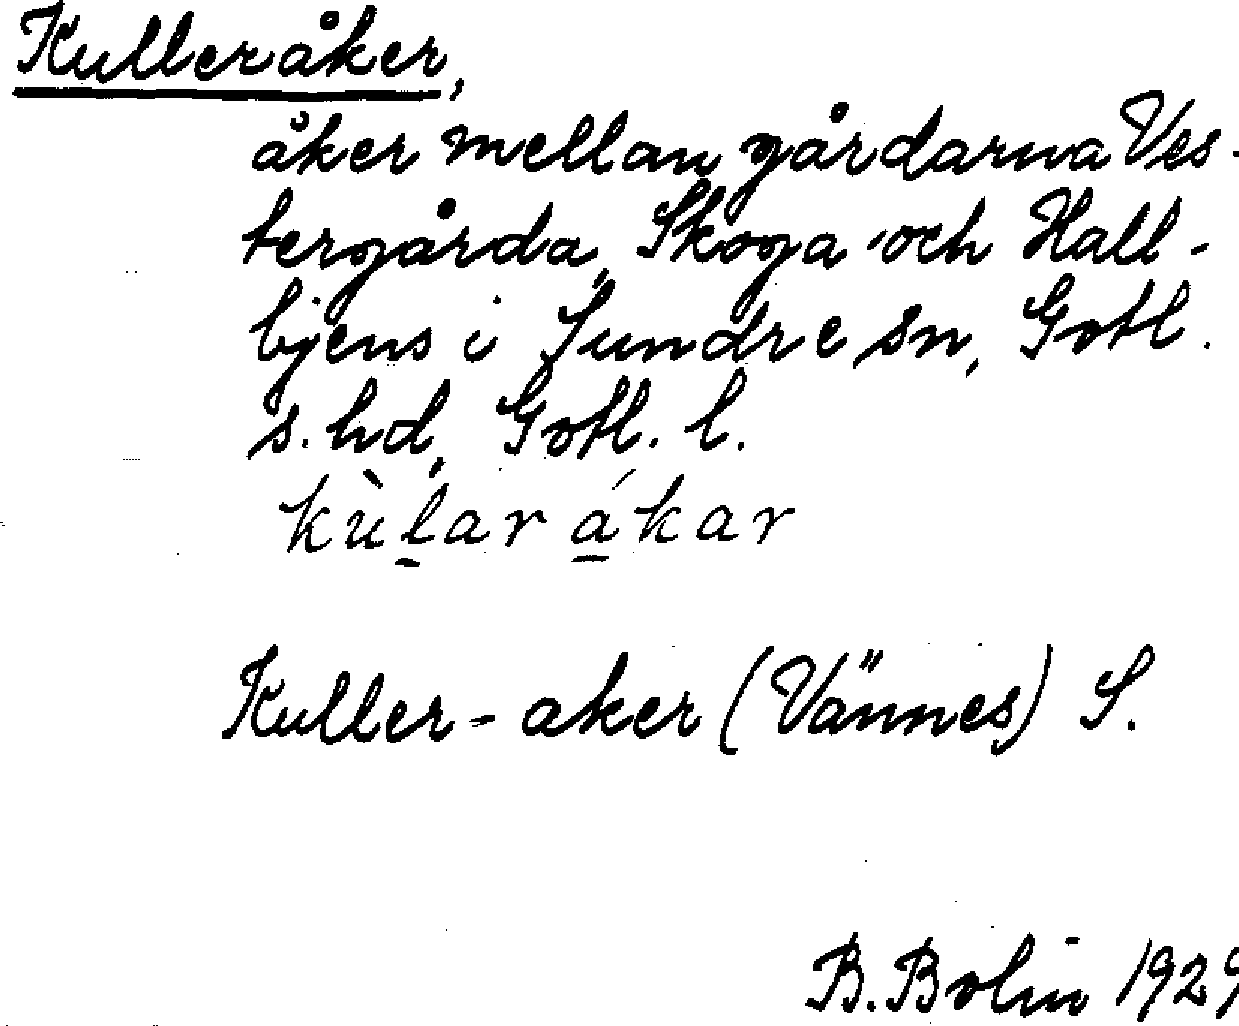 Kulleråker,
åker mellan gårdarna Ves-
tergårda, Skoga och Hall-
bjens i Sundre sn, Gotl.
s. hd, Gotl. l.
kùl̠ar á̠kar
Kuller-aker (Vännes) S.
B. Bolin 1929